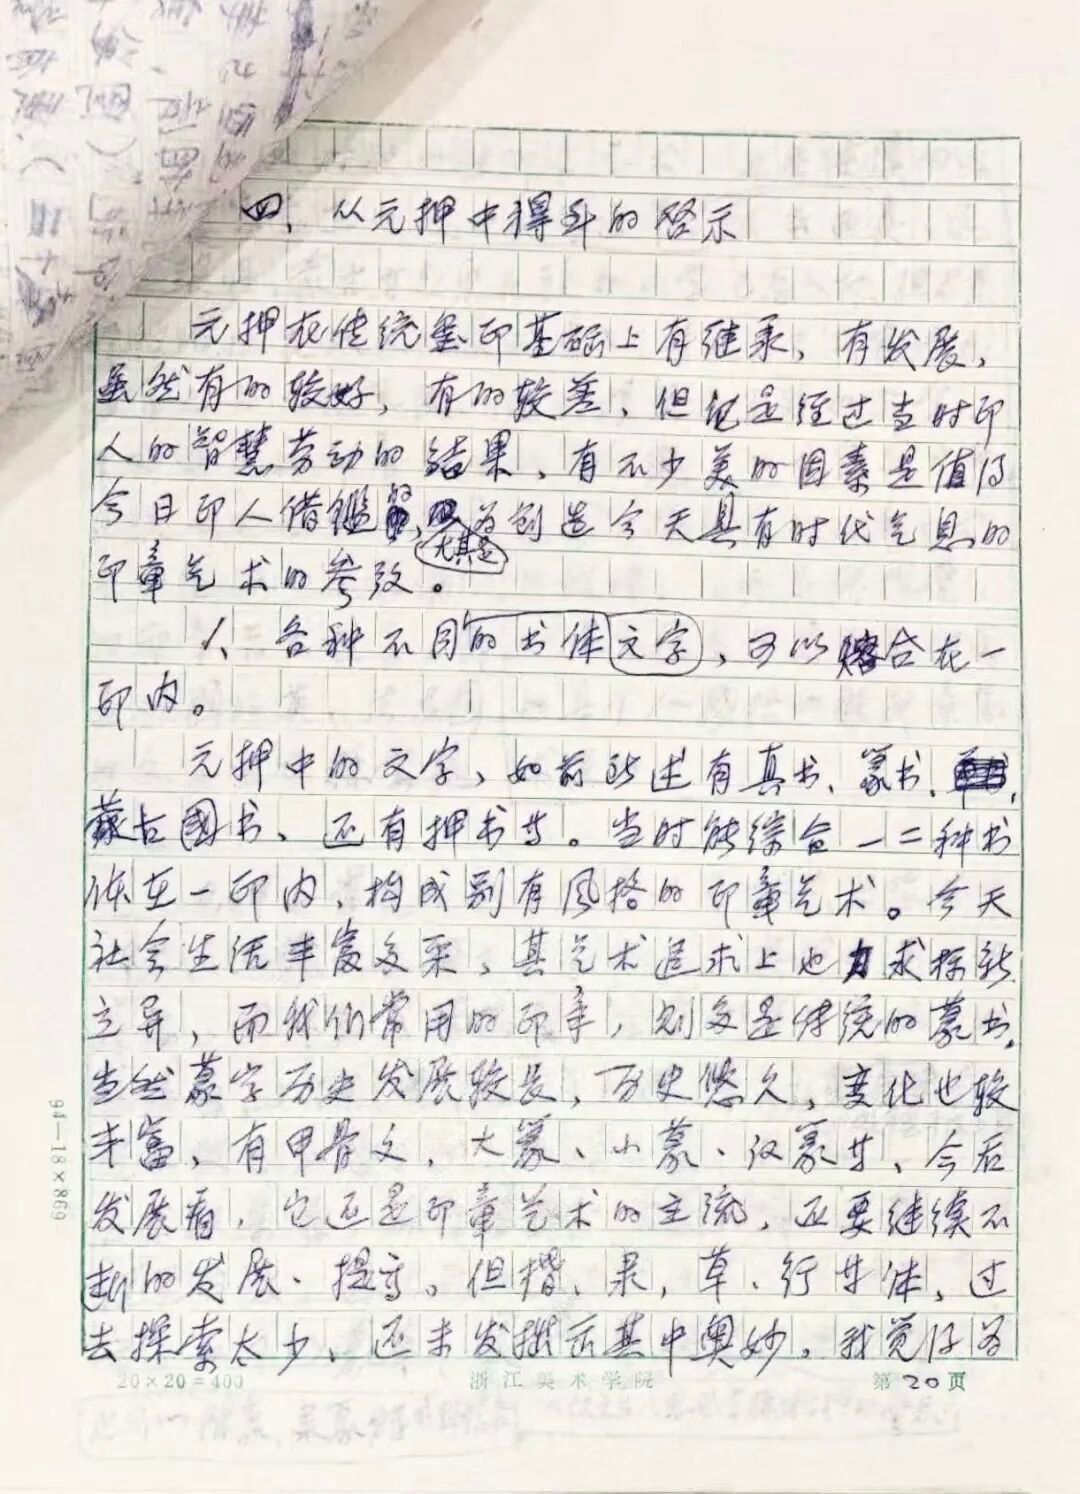 四、从元押中得到的启示
元押在传统玺印基础上有继承，有发展，
虽然有的较好，有的较差，但它是经过当时印
人的智慧劳动的结果，有不少美的因素是值得
今日印人借鑑的，尤其是为创造今天具有时代气息的
印章艺术的参考。
1、各种不同的书体文字，可以熔合在一
印内。
元押中的文字，如前所述有真书、篆书、
蒙古國书、还有押书等。当时能综合一二种书
体在一印内，构成别有风格的印章艺术。今天
社会生活丰富多采，其艺术追求上也力求标新
立异，而我们常用的印章，则多是传统的篆书，
当然篆字历史发展较长，历史悠久，变化也较
丰富，有甲骨文、大篆、小篆、汉篆等，今后
发展看，它还是印章艺术的主流，还要继续不
断的发展、提高。但楷、隶，草、行等体，过
去探索太少，还未发掘出其中奥妙。我觉得为
20×20=400
浙江美术学院
第20页
94—18×869